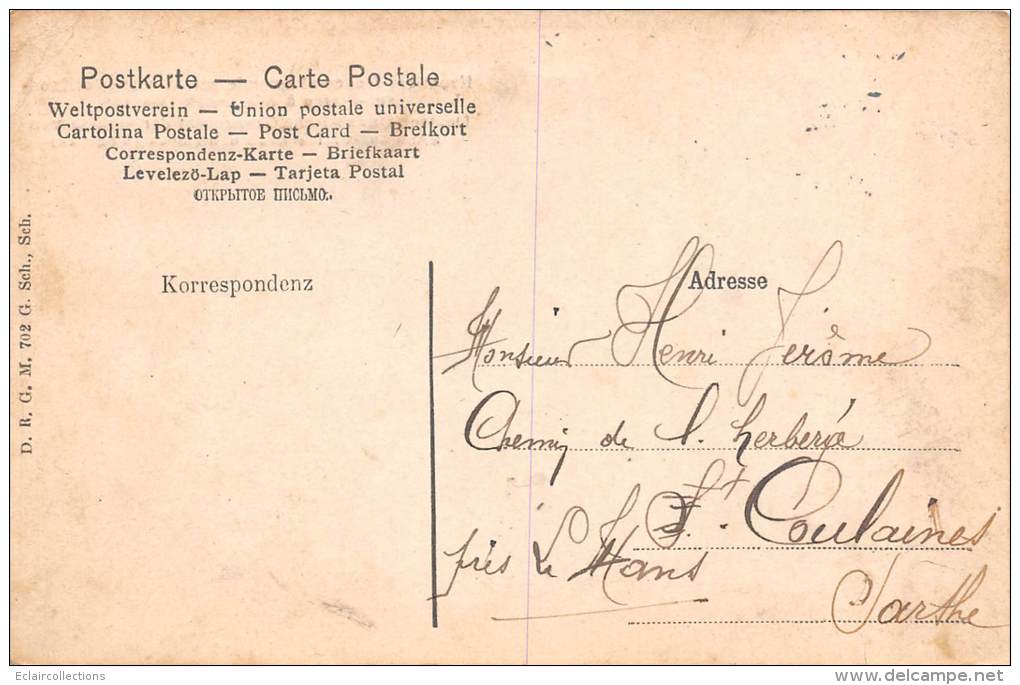 Postkarte — Carte Postale
Weltpostverein — Union postale universelle
Cartolina Postale — Post Card — Brefkort
Correspondenz-Karte — Briefkaart
Levelező-Lap — Tarjeta Postal
ОТКРЫТОЕ ПИСЬМО.
D. R. G. M. 702 G. Sch., Sch.
Korrespondenz
Adresse
Monsieur Henri Jérôme
Chemin de l'herberie
St. Coulaines
près Le Mans
Sarthe
Eclaircollections
www.delcampe.net